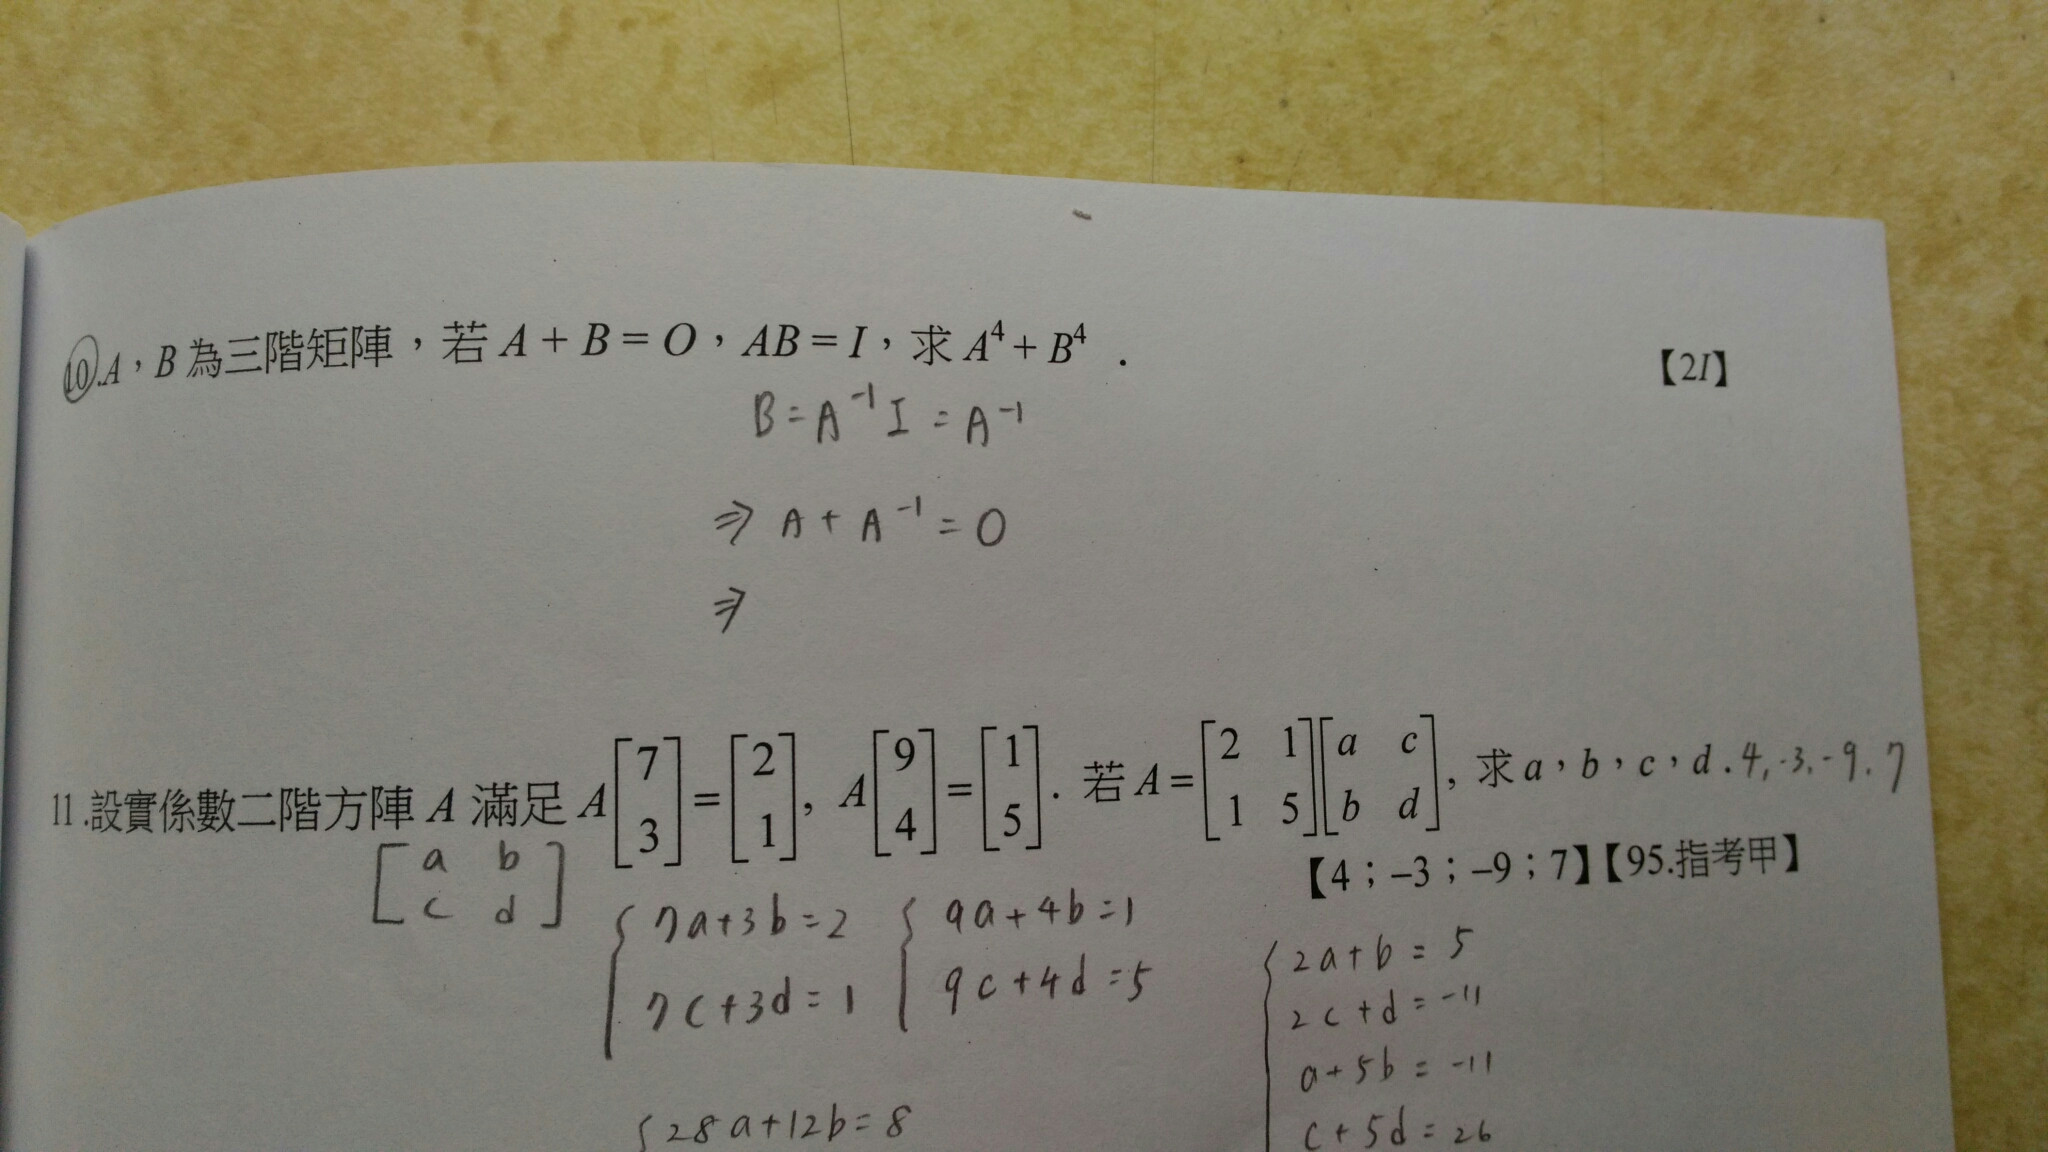 10.A，B為三階矩陣，若 A + B = O，AB = I，求 A⁴ + B⁴ . 【2I】
B = A⁻¹ I = A⁻¹
⇒ A + A⁻¹ = O
⇒
11.設實係數二階方陣 A 滿足 A[7 3] = [2 1], A[9 4] = [1 5]. 若 A = [2 1; 1 5][a c; b d], 求 a，b，c，d. 4, -3, -9, 7
【4；–3；–9；7】【95.指考甲】
[a b; c d]
{7a+3b=2
7c+3d=1
{9a+4b=1
9c+4d=5
{2a+b=5
2c+d=-11
a+5b=-11
c+5d=26
{28a+12b=8